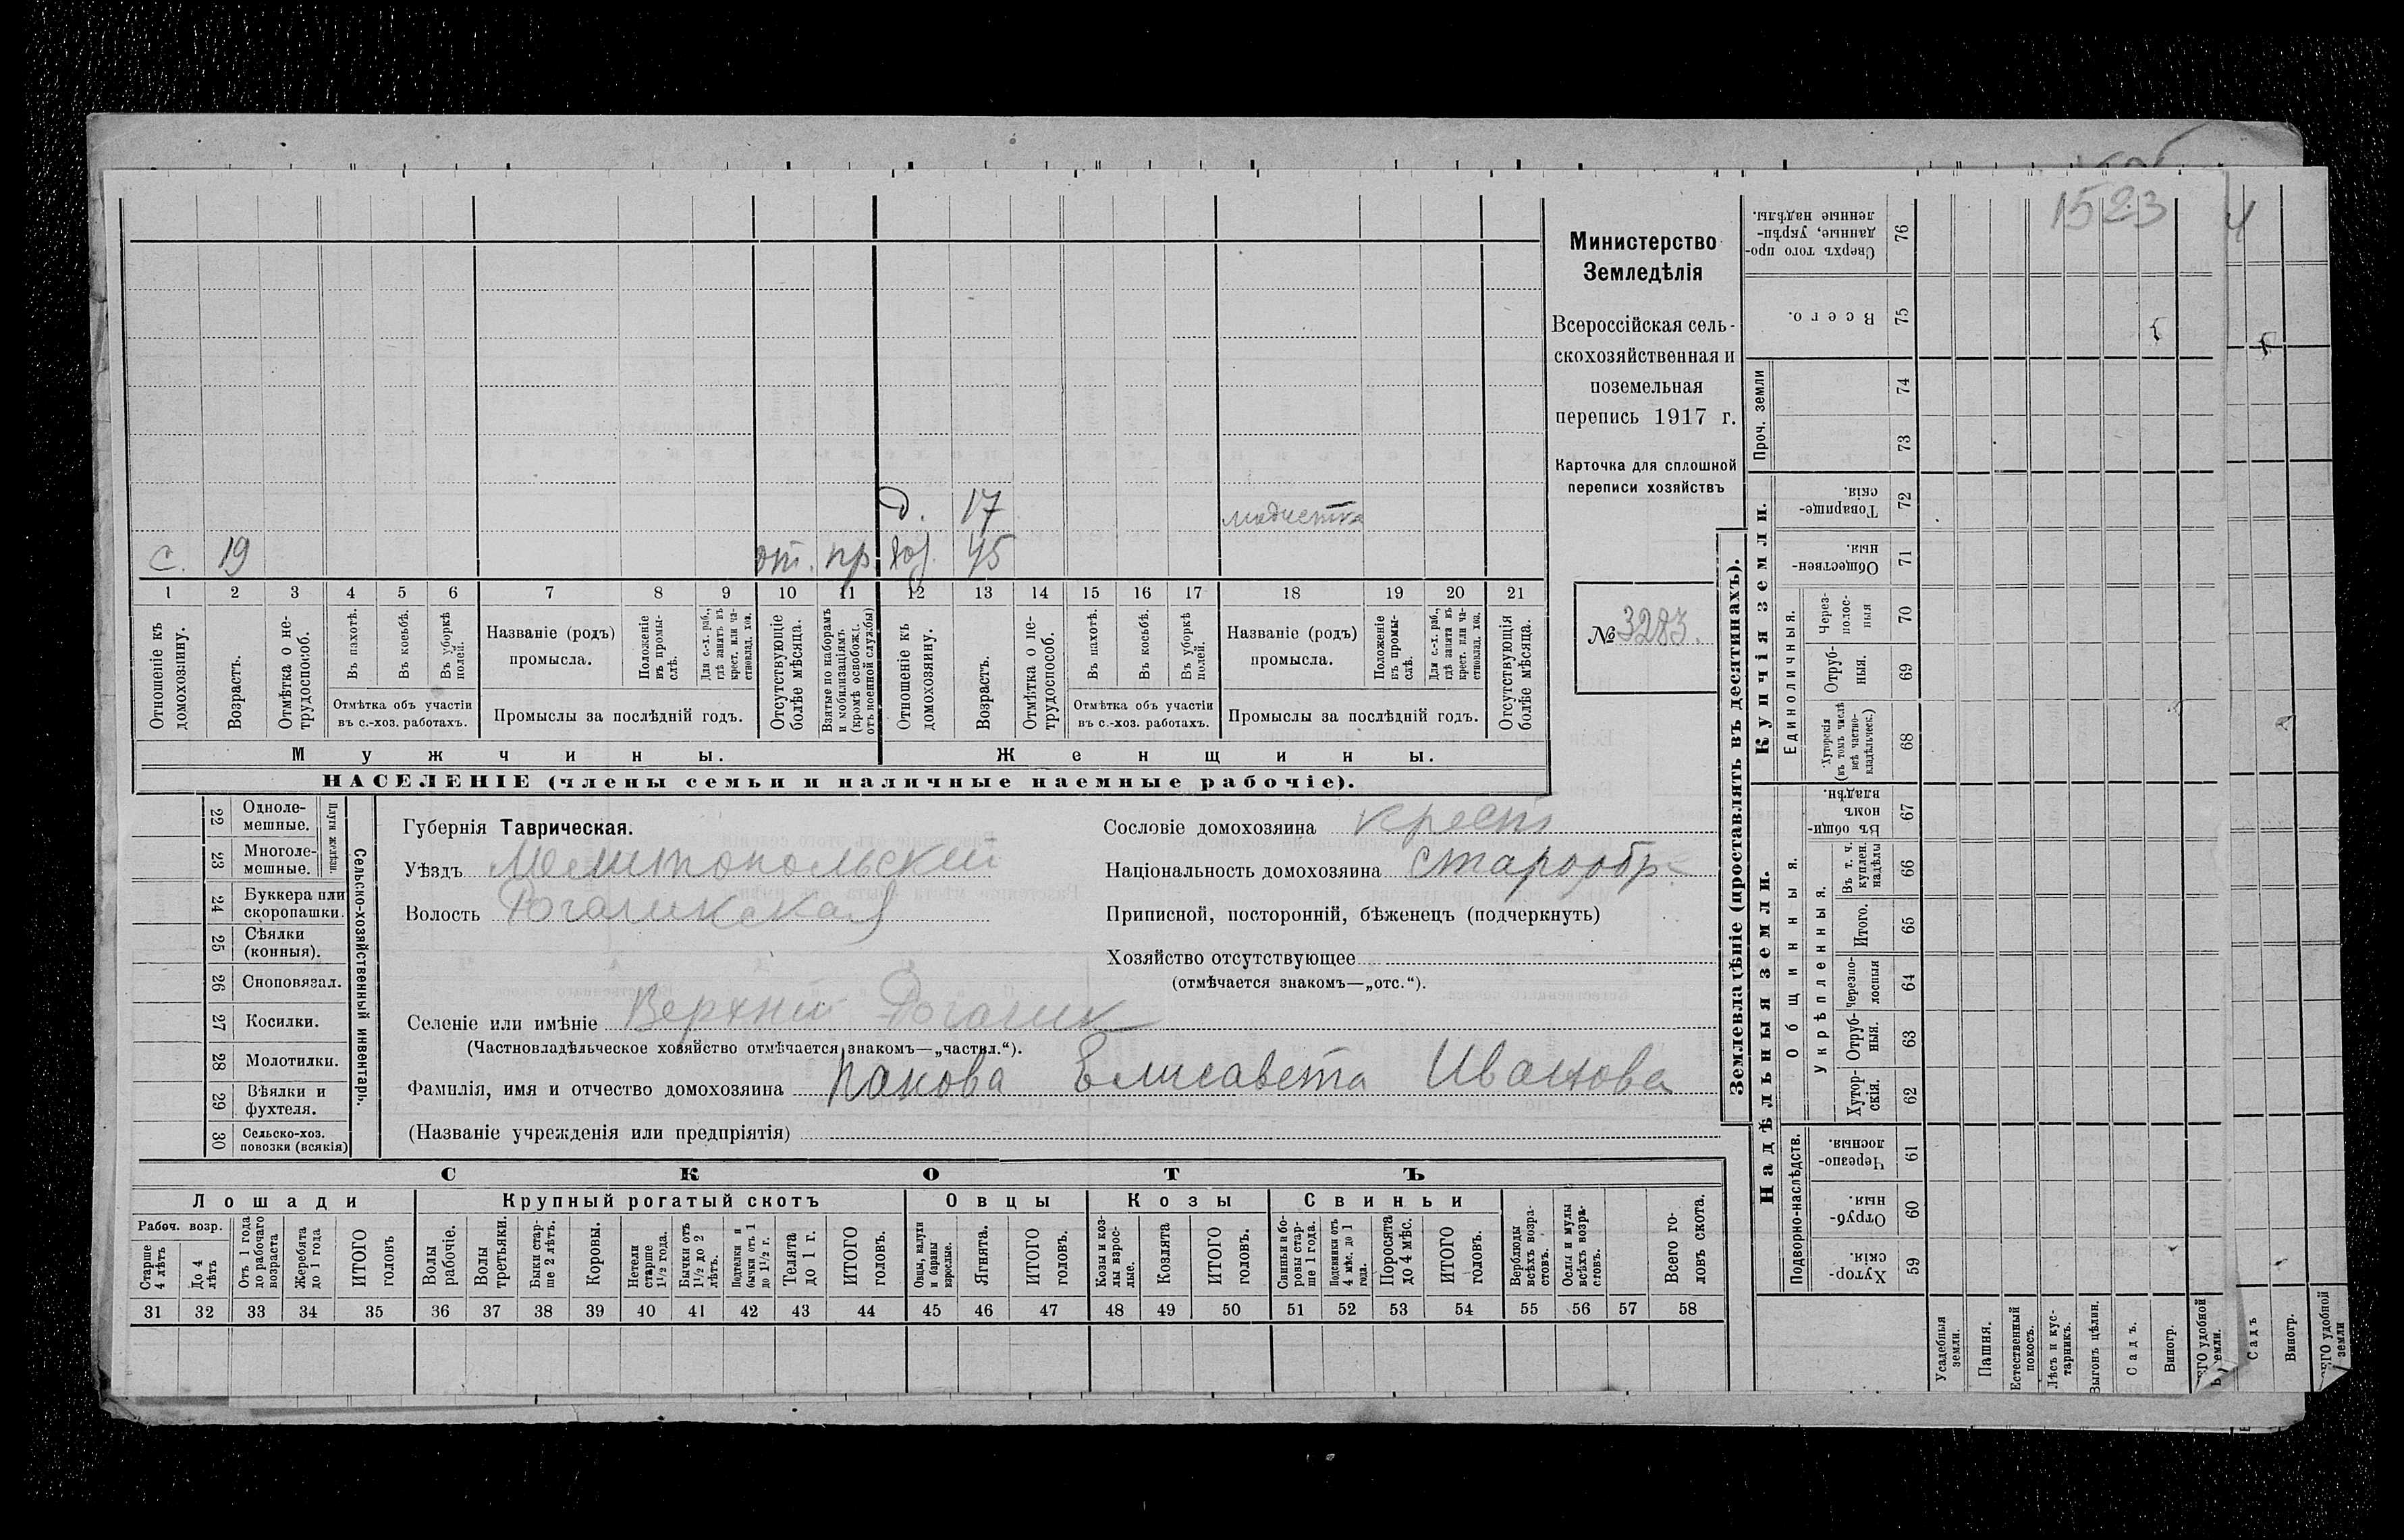 1523
Министерство
Земледѣлія
Всероссійская сель-
скохозяйственная и
поземельная
перепись 1917 г.
Карточка для сплошной
переписи хозяйствъ
№ 3283.
д. 17 модистка
с. 19 от. пр. хоз. 45
1 2 3 4 5 6 7 8 9 10 11 12 13 14 15 16 17 18 19 20 21
Отношеніе къ домохозяину.
Возрастъ.
Отмѣтка о не-трудоспособ.
Въ пахотѣ.
Въ косьбѣ.
Въ уборкѣ полей.
Отмѣтка объ участіи
въ с.-хоз. работахъ.
Названіе (родъ)
промысла.
Положеніе въ промы-слѣ.
Для с.-х. раб., гдѣ занятъ въ крест. или ча-стновлад. хоз.
Промыслы за послѣдній годъ.
Отсутствующіе болѣе мѣсяца.
Взятые по наборамъ и мобилизаціямъ (кромѣ освобожд. отъ военной службы)
Отношеніе къ домохозяину.
Возрастъ.
Отмѣтка о не-трудоспособ.
Въ пахотѣ.
Въ косьбѣ.
Въ уборкѣ полей.
Отмѣтка объ участіи
въ с.-хоз. работахъ.
Названіе (родъ)
промысла.
Положеніе въ промы-слѣ.
Для с.-х. раб., гдѣ занята въ крест. или ча-стновлад. хоз.
Промыслы за послѣдній годъ.
Отсутствующія болѣе мѣсяца.
Мужчины. Женщины.
НАСЕЛЕНІЕ (члены семьи и наличные наемные рабочіе).
Сельско-хозяйственный инвентарь.
Плуги желѣзн.
22 Одноле-мешные.
23 Многоле-мешные.
24 Буккера или скоропашки.
25 Сѣялки (конныя).
26 Сноповязал.
27 Косилки.
28 Молотилки.
29 Вѣялки и фухтеля.
30 Сельско-хоз. повозки (всякія)
Губернія Таврическая.
Уѣздъ Мелитопольский
Волость Рогаликская
Селеніе или имѣніе Верхний Рогалик
(Частновладѣльческое хозяйство отмѣчается знакомъ—„частвл.“).
Фамилія, имя и отчество домохозяина Панова Елисавета Иванова
(Названіе учрежденія или предпріятія)
Сословіе домохозяина крест
Національность домохозяина старообр.
Приписной, посторонній, бѣженецъ (подчеркнуть)
Хозяйство отсутствующее
(отмѣчается знакомъ—„отс.“).
СКОТЪ
Лошади Крупный рогатый скотъ Овцы Козы Свиньи
Рабоч. возр.
Старше 4 лѣтъ
До 4 лѣтъ
Отъ 1 года до рабочаго возраста
Жеребята до 1 года
ИТОГО головъ
Волы рабочіе.
Волы третьяки.
Быки стар-ше 2 лѣтъ.
Коровы.
Нетели старше 1½ года.
Бычки отъ 1½ до 2 лѣтъ.
Подтелки и бычки отъ 1 до 1½ г.
Телята до 1 г.
ИТОГО головъ.
Овцы, валухи и бараны взрослые.
Ягнята.
ИТОГО головъ.
Козы и коз-лы взрос-лые.
Козлята
ИТОГО головъ.
Свиньи и бо-ровы стар-ше 1 года.
Подсвинки отъ 4 мѣс. до 1 года.
Поросята до 4 мѣс.
ИТОГО головъ.
Верблюды всѣхъ возра-стовъ.
Ослы и мулы всѣхъ возра-стовъ.
Всего го-ловъ скота.
31 32 33 34 35 36 37 38 39 40 41 42 43 44 45 46 47 48 49 50 51 52 53 54 55 56 57 58
Землевладѣніе (проставлять въ десятинахъ).
Надѣльныя земли.
Купчія земли.
Проч. земли
Подворно-наслѣдств.
Общинныя.
Укрѣпленныя.
Единоличныя.
Хутор-скія. 59
Отруб-ныя. 60
Черезпо-лосныя. 61
Хутор-скія. 62
Отруб-ныя. 63
Черезпо-лосныя 64
Итого. 65
Въ т. ч. куплен. надѣлы 66
Въ общи-номъ владѣн. 67
Хуторскія (въ томъ числѣ всѣ частно-владѣльческ.) 68
Отруб-ныя. 69
Через-полос-ныя 70
Обществен-ныя. 71
Товарище-скія. 72
73
74
Всего. 75
Сверхъ того про-данные, укрѣп-ленные надѣлы. 76
Усадебныя земли.
Пашня.
Естественный покосъ.
Лѣсъ и кус-тарникъ.
Выгонъ цѣлин.
Садъ.
Виногр.
Садъ
Виногр.